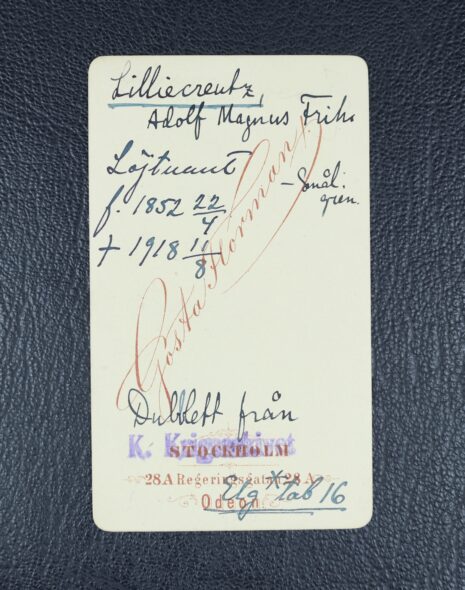 Lilliecreutz,
Adolf Magnus Frihr
Löjtnant
– Smål.
gren.
f. 1852 22/4
† 1918 11/8
Gösta Florman
Dubblett från
K. Krigsarkivet
STOCKHOLM
28 A Regeringsgatan 28 A
Odeon
Elg x tab 16